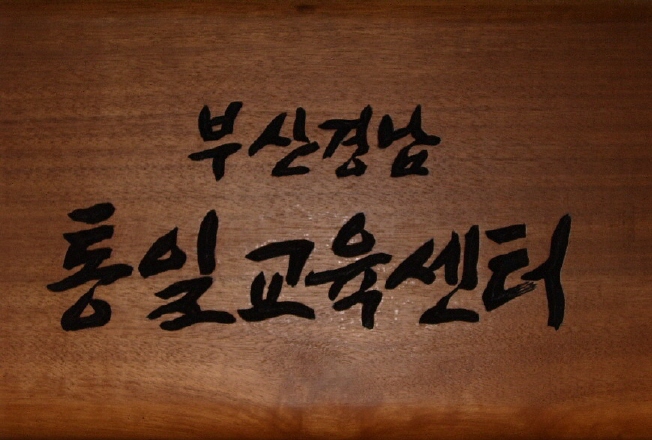 부산경남
통일교육센터